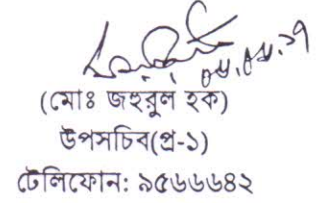 ০৮.০৮.১৭
(মোঃ জহুরুল হক)
উপসচিব(প্র-১)
টেলিফোন: ৯৫৬৬৬৪২